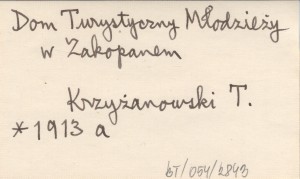 Dom Turystyczny Młodzieży
w Zakopanem
Krzyżanowski T.
* 1913 a
bT/054/2843